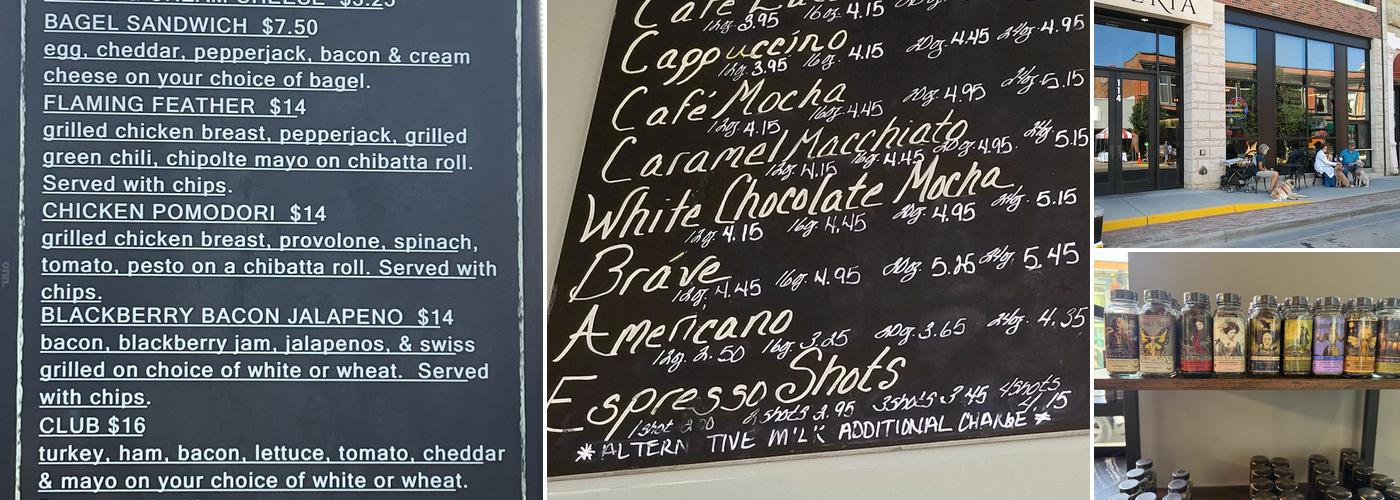 CREAM CHEESE $3.25
BAGEL SANDWICH $7.50
egg, cheddar, pepperjack, bacon & cream
cheese on your choice of bagel.
FLAMING FEATHER $14
grilled chicken breast, pepperjack, grilled
green chili, chipolte mayo on chibatta roll.
Served with chips.
CHICKEN POMODORI $14
grilled chicken breast, provolone, spinach,
tomato, pesto on a chibatta roll. Served with
chips.
BLACKBERRY BACON JALAPENO $14
bacon, blackberry jam, jalapenos, & swiss
grilled on choice of white or wheat. Served
with chips.
CLUB $16
turkey, ham, bacon, lettuce, tomato, cheddar
& mayo on your choice of white or wheat.
onn.
Café
12oz. 3.95 16oz. 4.15
Cappuccino
12oz. 3.95 16oz. 4.15 20oz. 4.45 24oz. 4.95
Café Mocha
12oz. 4.15 16oz. 4.45 20oz. 4.95 24oz. 5.15
Caramel Macchiato
12oz. 4.15 16oz. 4.45 20oz. 4.95. 24oz. 5.15
White Chocolate Mocha
12oz. 4.15 16oz. 4.45 20oz. 4.95 24oz. 5.15
Bráve
12oz. 4.45 16oz. 4.95 20oz. 5.25 24oz. 5.45
Americano
12oz. 2.50 16oz. 3.25 20oz. 3.65 24oz. 4.35
Espresso Shots
1 shot 2 shots 2.95 3 shots 3.45 4 shots 4.15
*ALTERN TIVE MILK ADDITIONAL CHARGE*
ERIA
114